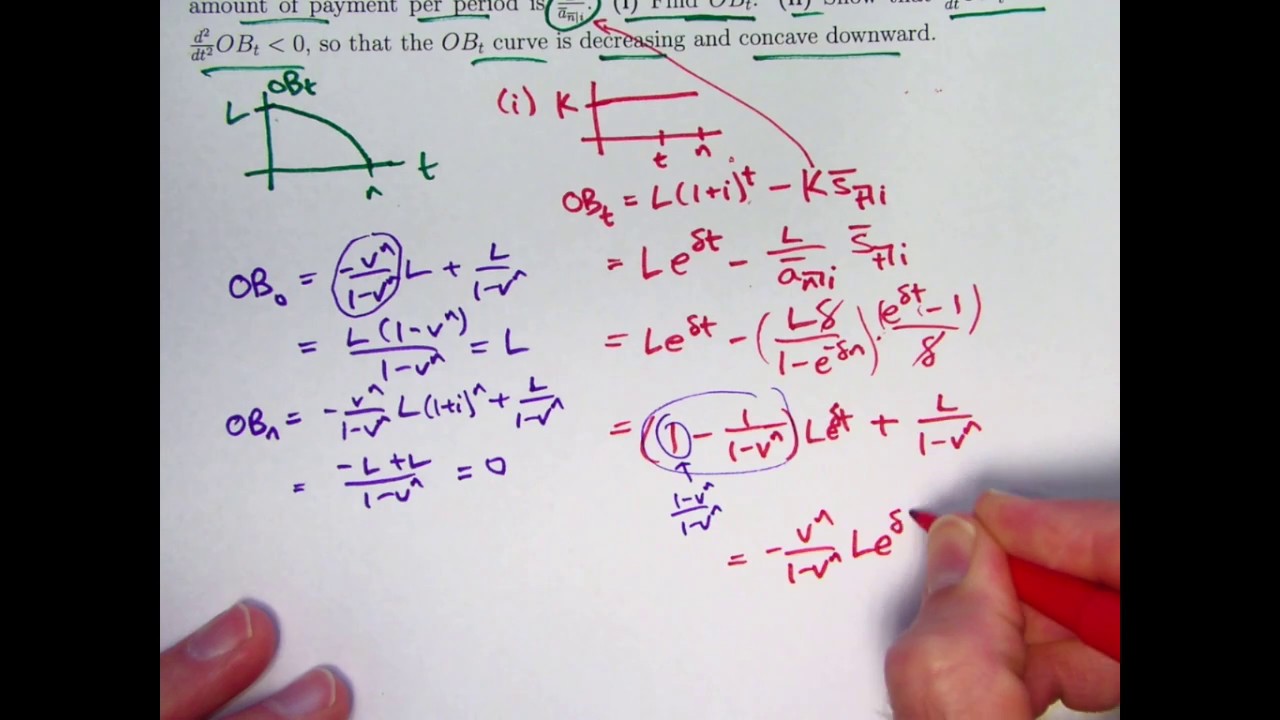 amount of payment per period is L/ā_n̅|i. (i) Find OB_t. (ii) Show that d/dt
d²/dt² OB_t < 0, so that the OB_t curve is decreasing and concave downward.
OB_t
L
n
t
(i) K
t n
OB_t = L(1+i)^t − K s̄_t̅|i
= Le^δt − L/ā_n̅|i s̄_t̅|i
= Le^δt − (Lδ/(1−e^−δn))·((e^δt − 1)/δ)
= (1 − 1/(1−v^n)) Le^δt + L/(1−v^n)
(1−v^n)/(1−v^n)
= −v^n/(1−v^n) Le^δ
OB_0 = −v^n/(1−v^n) L + L/(1−v^n)
= L(1−v^n)/(1−v^n) = L
OB_n = −v^n/(1−v^n) L(1+i)^n + L/(1−v^n)
= (−L+L)/(1−v^n) = 0